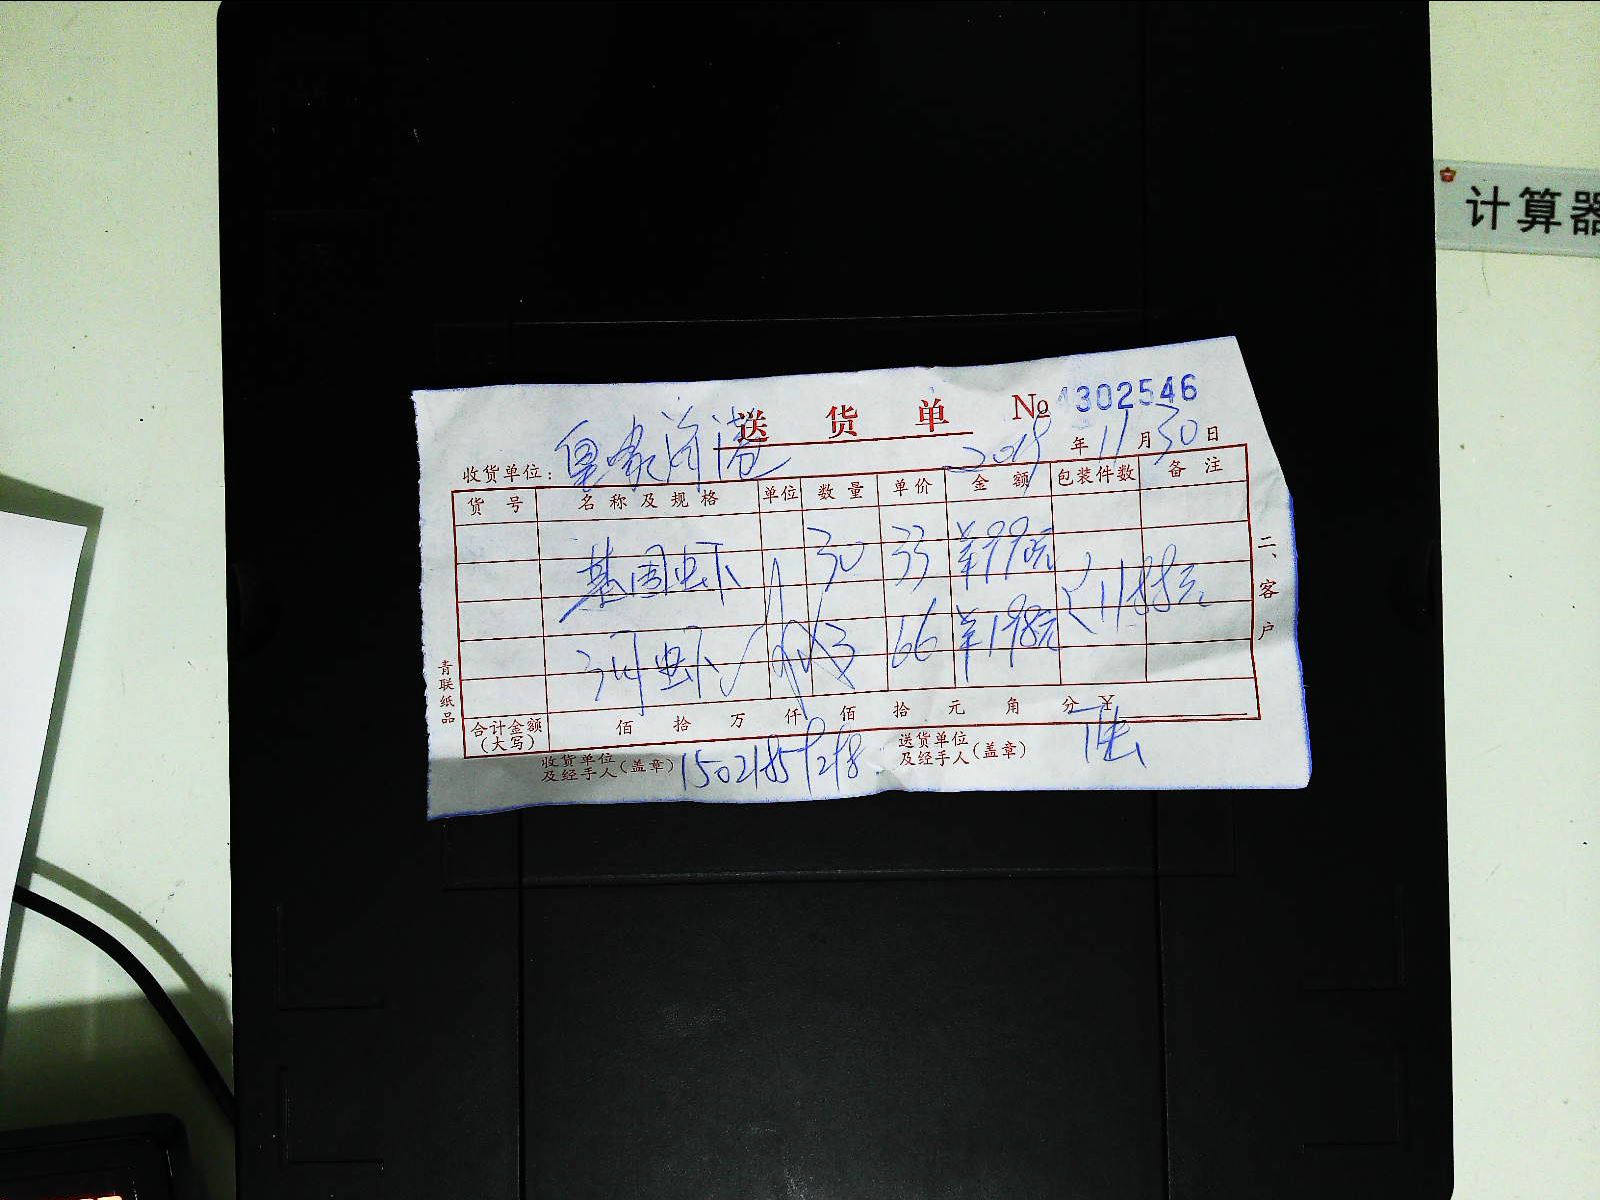 计算器
送货单 No 4302546
收货单位：皇家洋港 2019年11月30日
货号 名称及规格 单位 数量 单价 金额 包装件数 备注
基围虾 30 33 ￥990元
河虾 3 66 ￥198元
1188元
合计金额（大写） 佰 拾 万 仟 佰 拾 元 角 分 ￥
收货单位及经手人（盖章） 送货单位及经手人（盖章）
二、客户
青联纸品